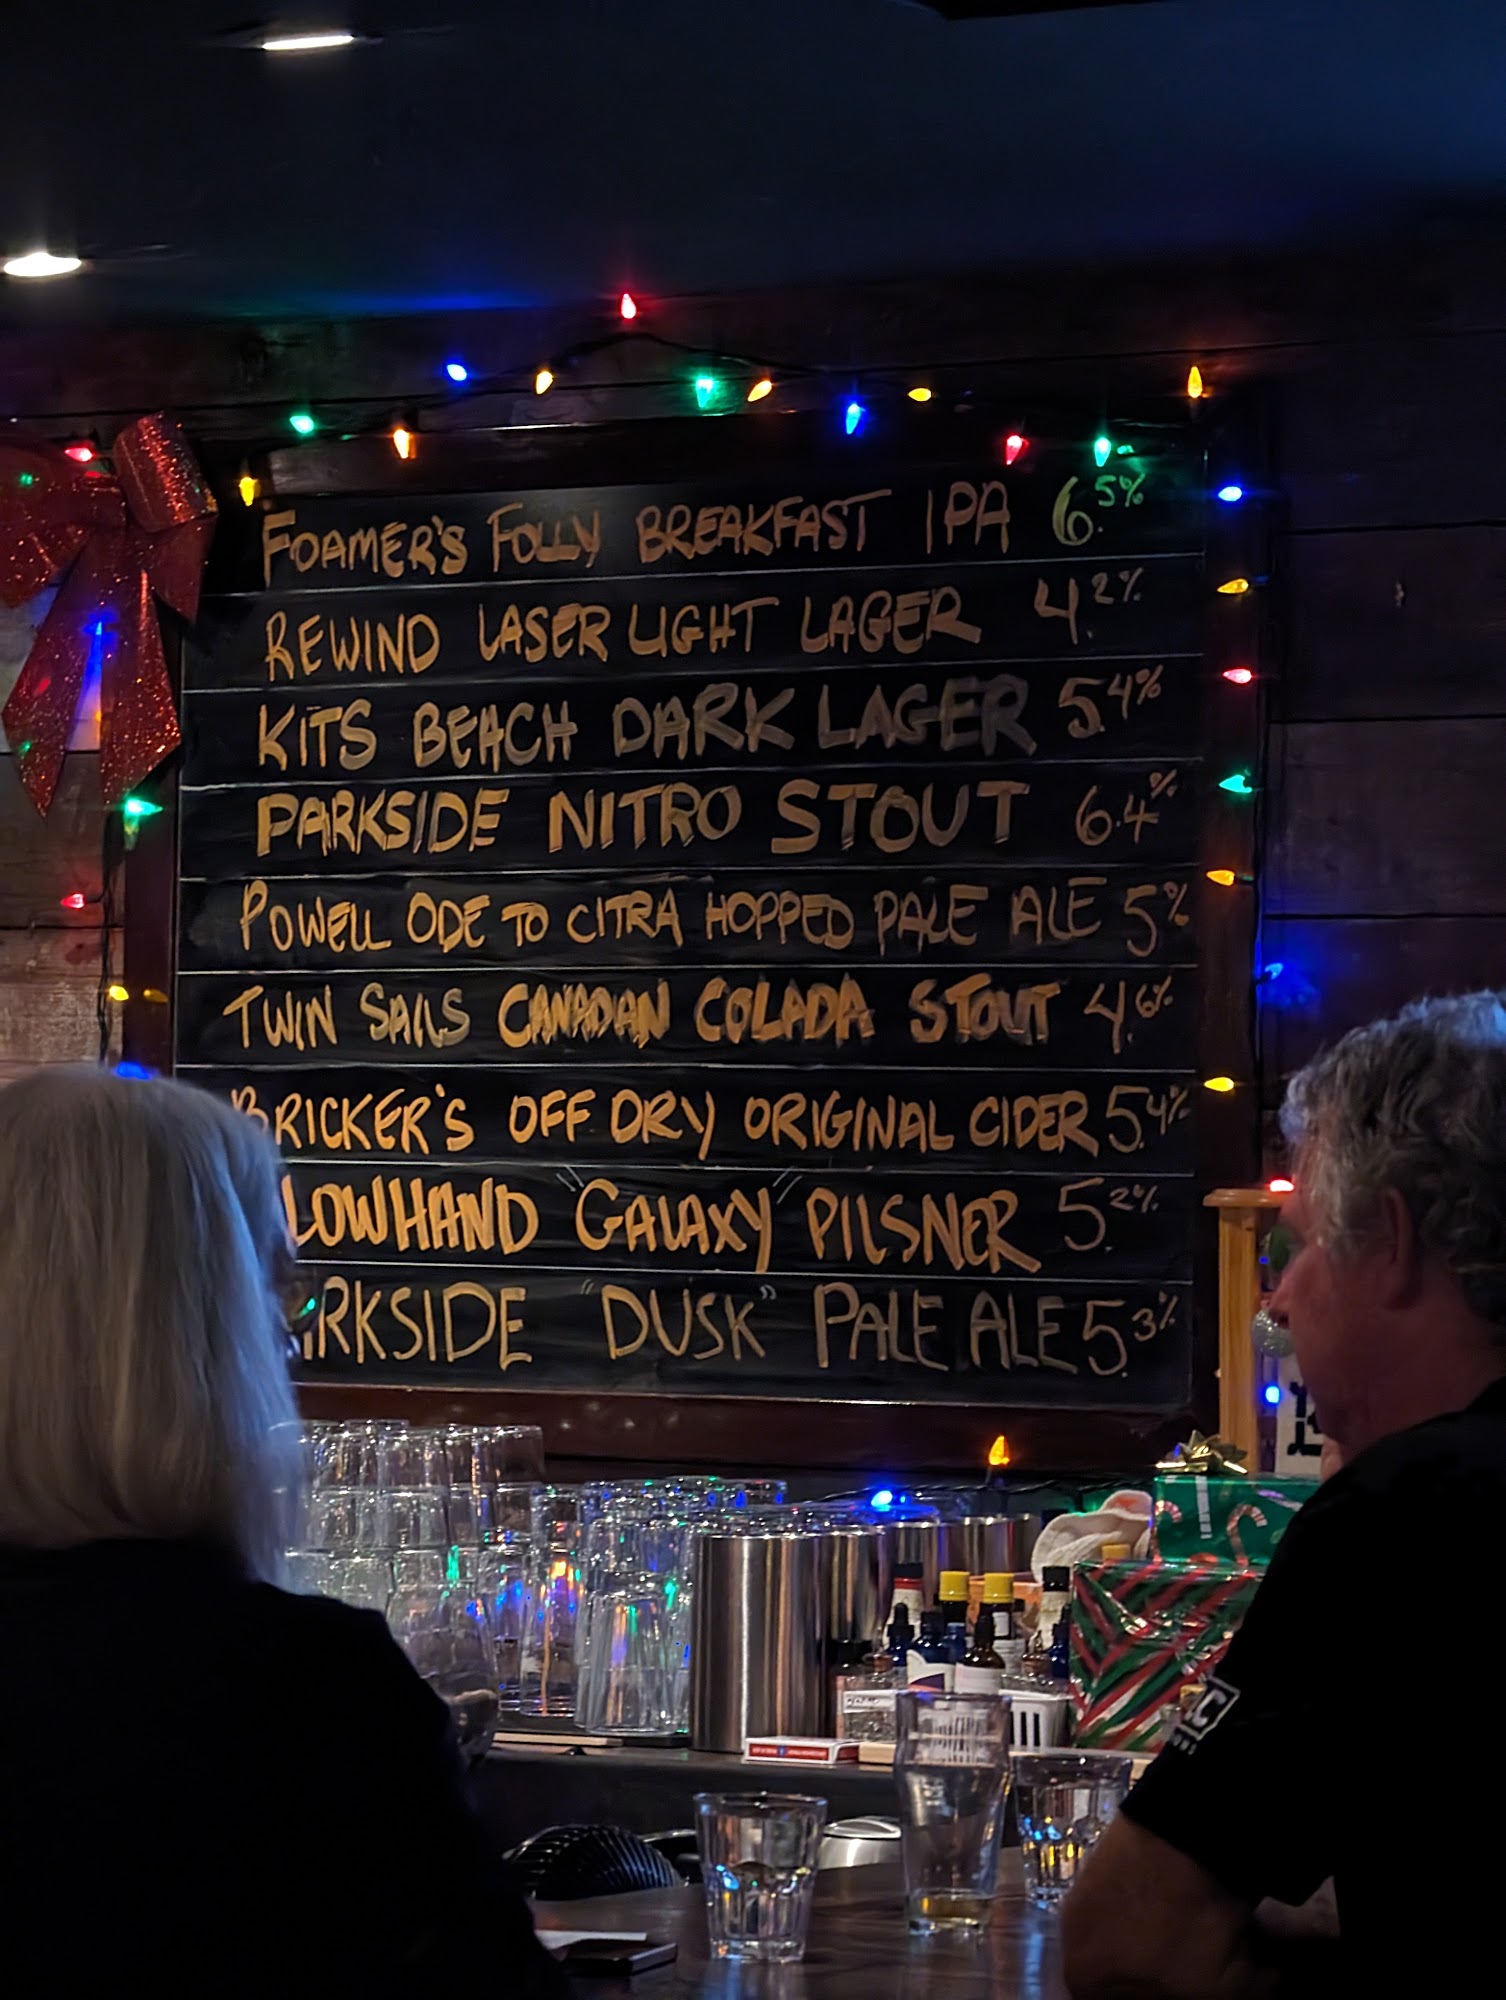 FOAMER'S FOLLY BREAKFAST IPA 6.5%
REWIND LASER LIGHT LAGER 4.2%
KITS BEACH DARK LAGER 5.4%
PARKSIDE NITRO STOUT 6.4%
POWELL ODE TO CITRA HOPPED PALE ALE 5%
TWIN SAILS CANADIAN COLADA STOUT 4.6%
BRICKER'S OFF DRY ORIGINAL CIDER 5.4%
LOWHAND "GALAXY" PILSNER 5.2%
RKSIDE "DUSK" PALE ALE 5.3%